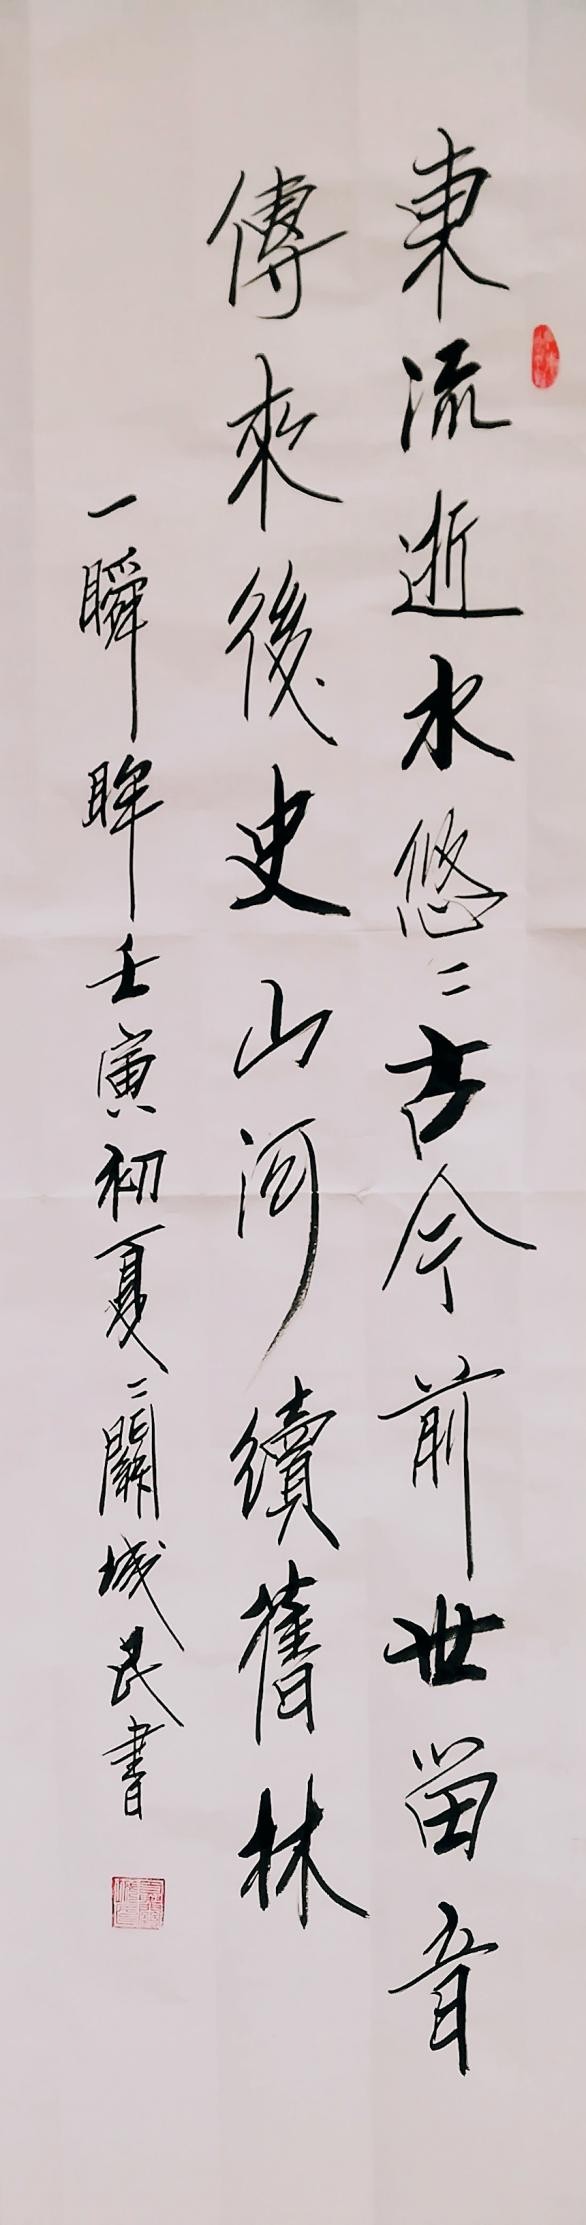 東流逝水悠〻古今前世留音
傳來後史山河續舊林
一瞬眸壬寅初夏〻關城民書